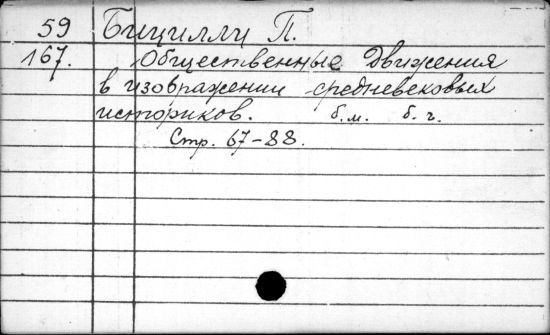 59 Бицилли П.
167. Общественные движения
в изображении средневековых
историков. б.м. б.г.
Стр. 67-88.